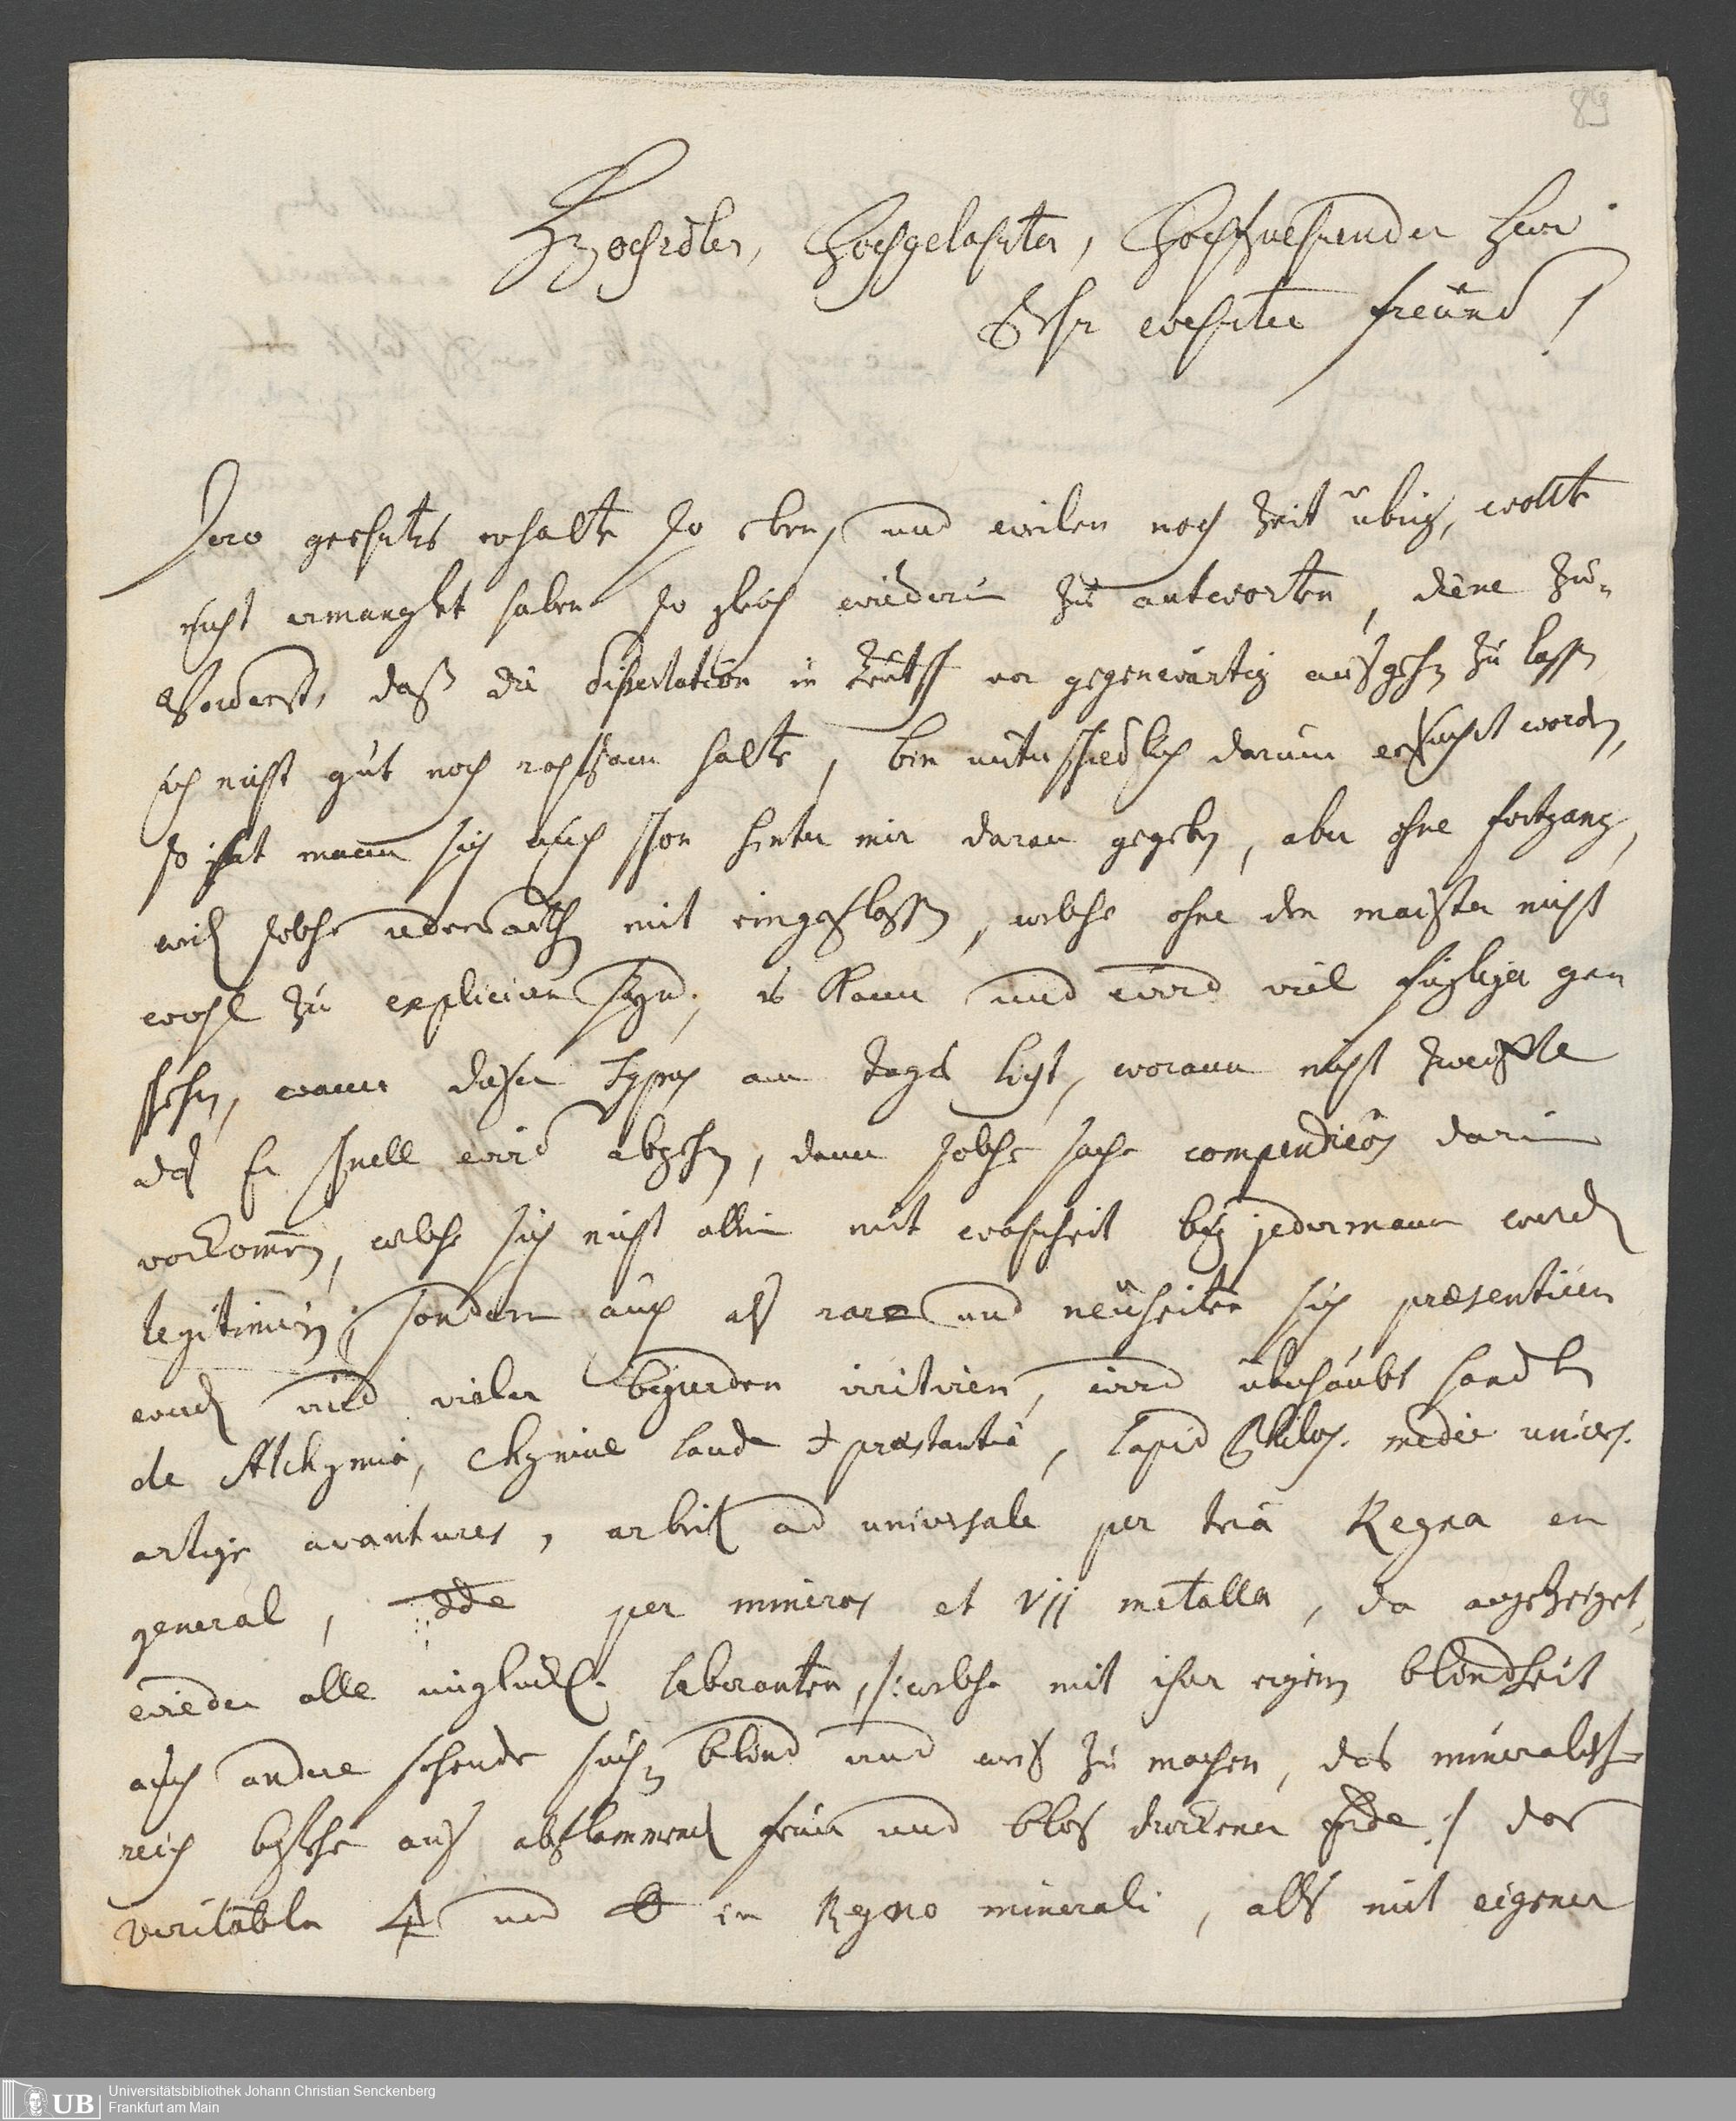 89
HochEdler, Hochgelahrter, Hochzuehrender Herr
Sehr wehrter freünd!
Dero geehrtes erhalte so eben, und weilen noch Zeit übrig, wollte
nicht ermanglet haben so gleich wiederum zu antworten, diene zu-
vorderst, daß die Dissertation in Teutsch vor gegenwärtig ausgehn zu lassen
ich nicht gut noch rathsam halte, bin unterschiedlich darum ersucht worden,
so hat mann sich auch schon hinter mir daran gegeben, aber ohne fortgang,
weil solche mit eingeflossen, welche ohne den maister nicht
wohl zu expliciren seynd; es kann und wird viel füglicher gen
schehn, wann dieser Typus am Tage ligt, woran nicht zweiffle
das Er schnell wird abgehn, dann solche sache compendieus darin
vorkommen, welche sich nicht allein mit wahrheit bey jedermann werden
legitimiren, sondern auch als rare und neüheiten sich præsentiren
werden und vieler begierden irritiren, wird überhaubt handlen
de Alchymia, chymiae laude et præstantia, Lapid Philos. medic univers.
artige avantures, arbeit ad universale per tria Regna en
general, per mineras et VII metalla, da angezeiget,
wieder alle unglückl. laboranten, /: welche mit ihrer eigenen blindheit
auch andere sehende suchen blind und weis zu machen, das mineralische
reich bestehe aus abstammend feüer und blos trockener Erde :/ das
veritable 🜍 und 🜔 in Regno minerali, als mit eigener
Universitätsbibliothek Johann Christian Senckenberg
Frankfurt am Main
UB